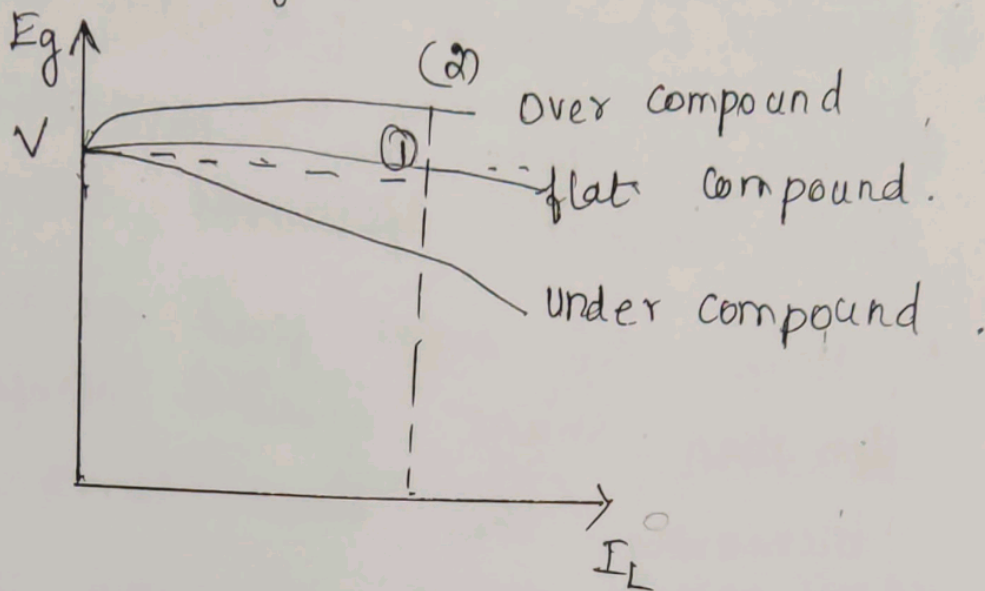 Eg
V
(2)
Over compound
①
flat compound.
under compound.
I_L